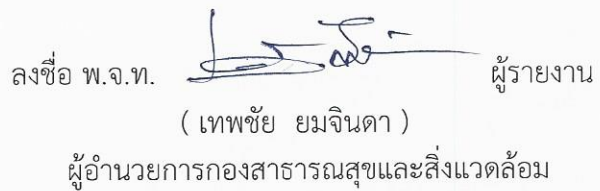 ลงชื่อ พ.จ.ท. ผู้รายงาน
( เทพชัย ยมจินดา )
ผู้อำนวยการกองสาธารณสุขและสิ่งแวดล้อม